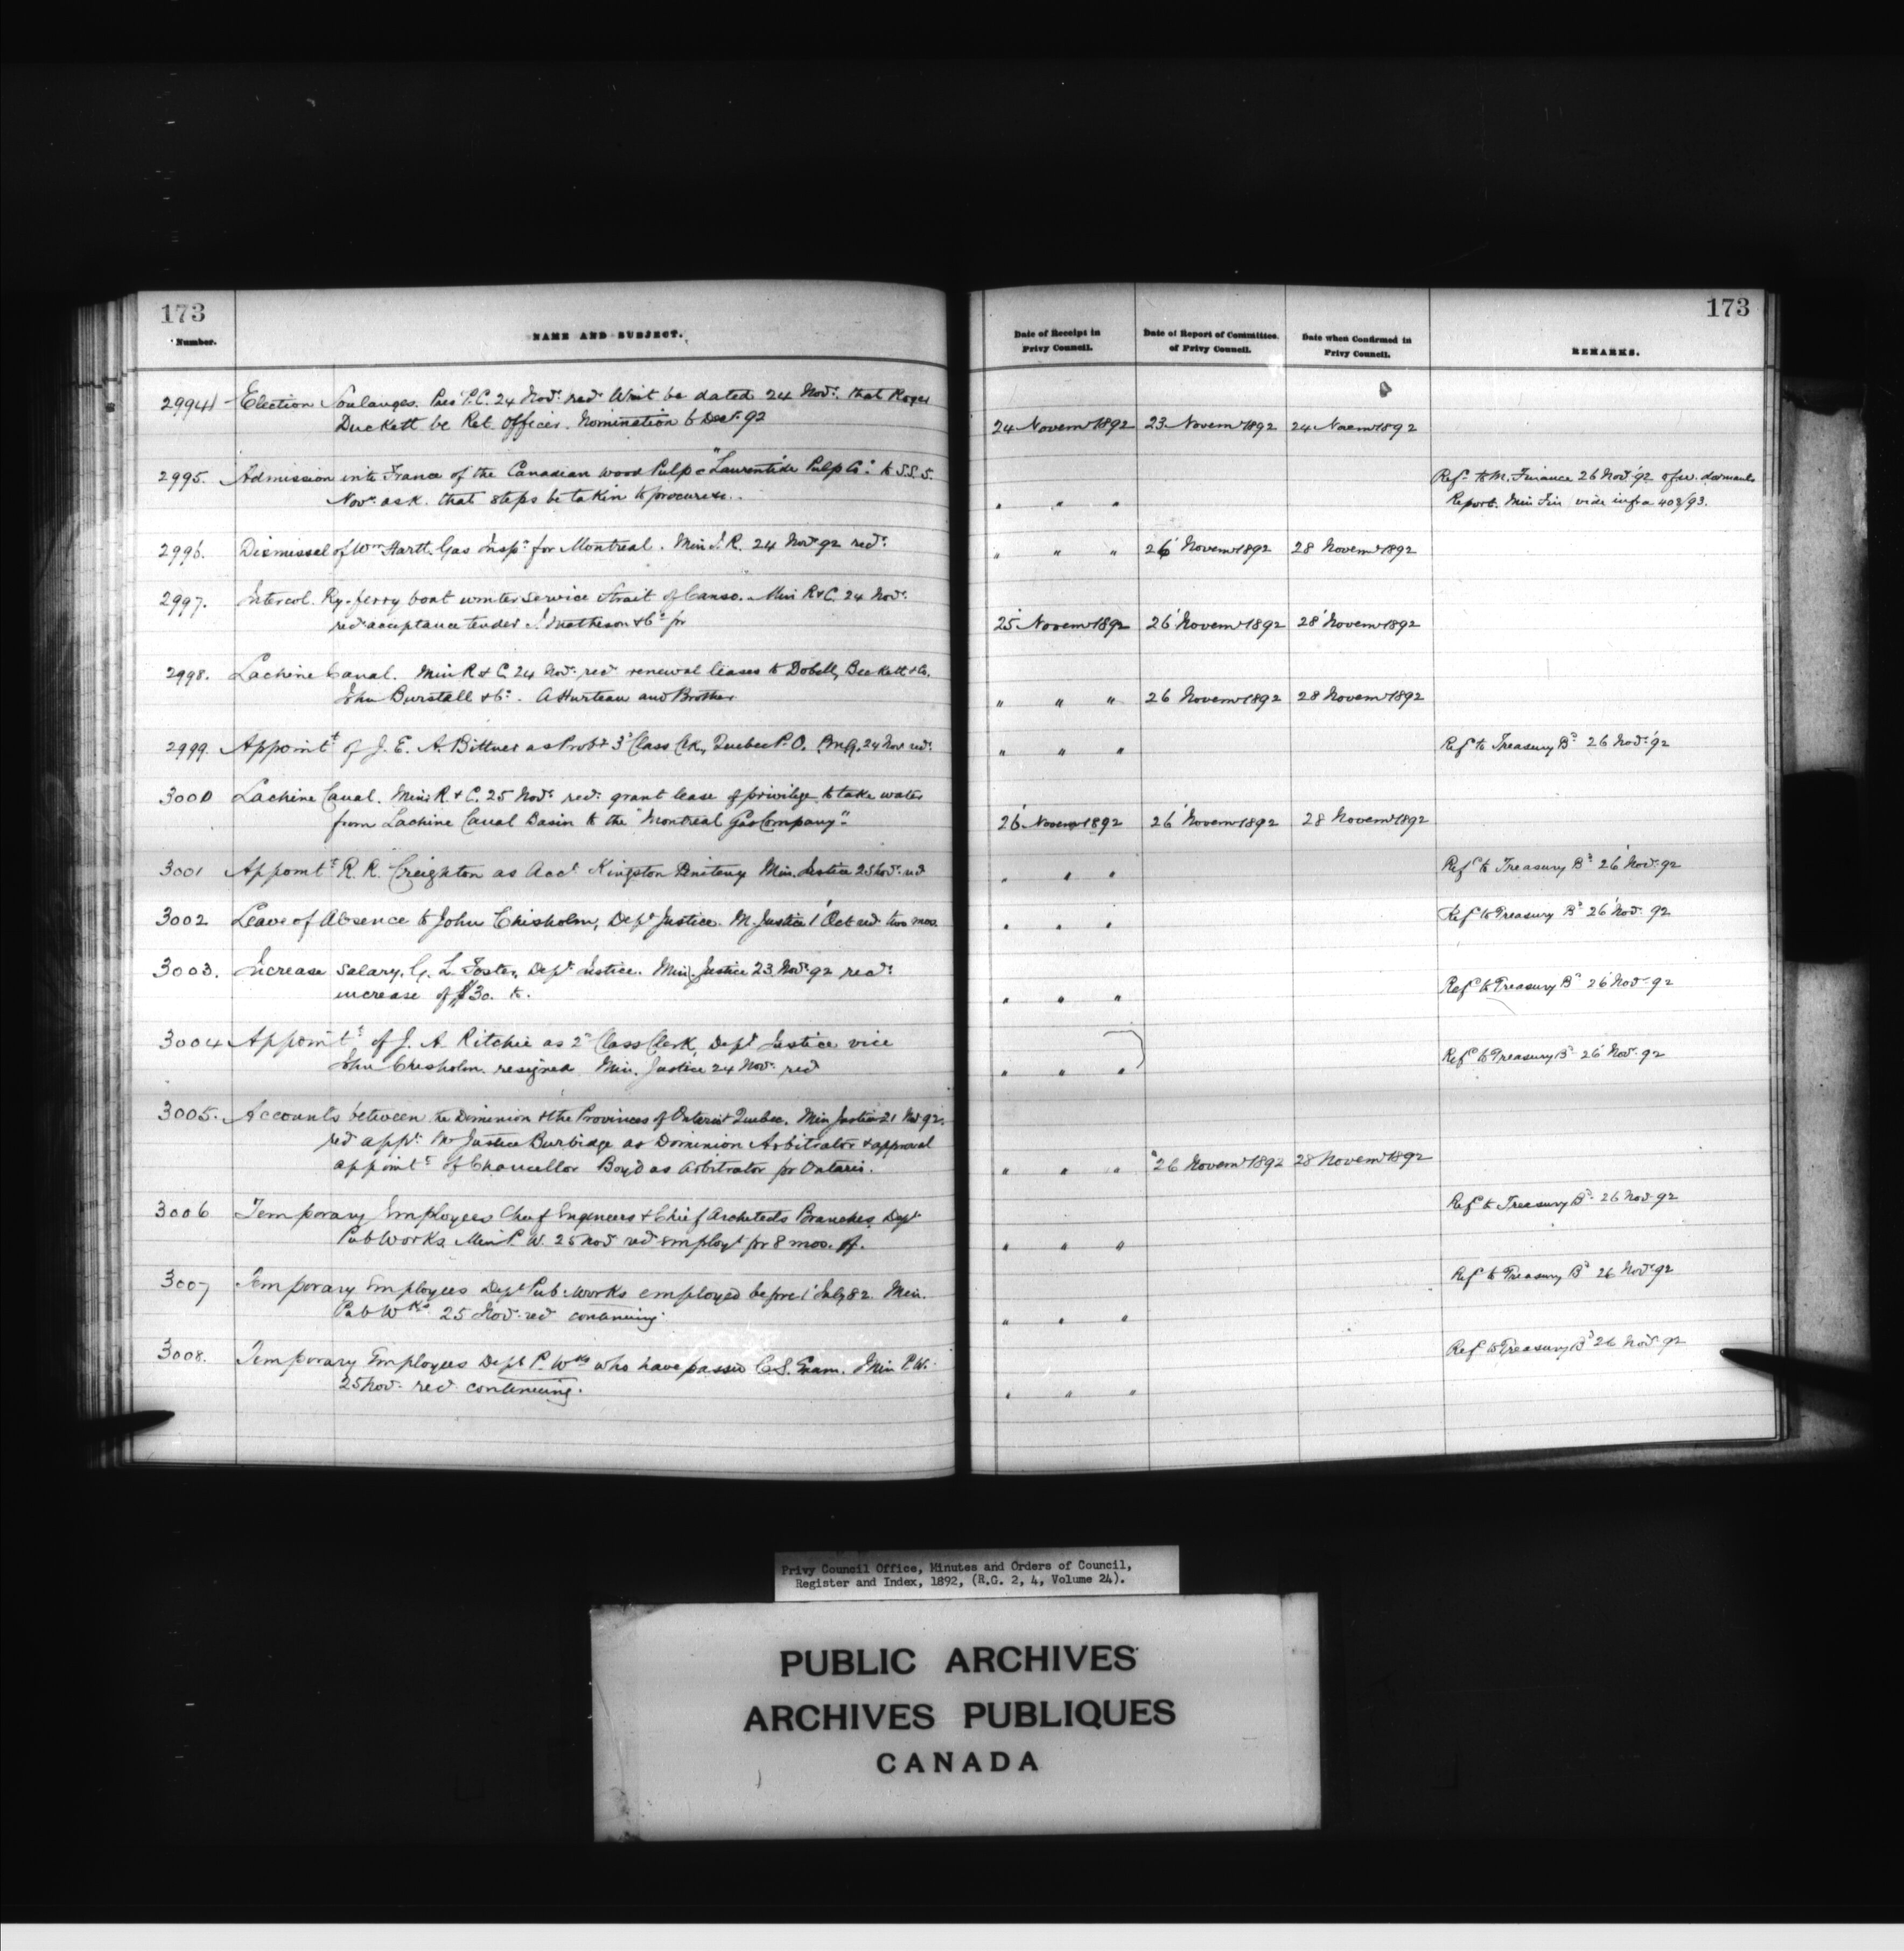 173
Number.
NAME AND SUBJECT.
2994 Election Soulanges. Pres P.C. 24 Novr recd Writ be dated 24 Novr. that Roger
Duckett be Ret. Officer. Nomination 6 Decr 92
2995. Admission into France of the Canadian Wood Pulp "Laurentide Pulp Co." to S.S. 5.
Novr ask that steps be taken to procure
2996. Dismissal of Wm Hartt. Gas Inspr for Montreal. Min I. R. 24 Novr 92 recd
2997. Intercol. Ry. ferry boat winter service Strait of Canso. Min R & C. 24 Novr.
recd acceptance tender J. Matheson & Co for
2998. Lachine Canal. Min R & C 24 Novr recd renewal leases to Dobell, Beckett & Co.
John Burstall & Co. A Hurteau and Brother
2999. Appointt of J. E. A. Bittner as Probr 3d Class Clk, Quebec P. O. PMG. 24 Nov recd
3000 Lachine Canal. Min R & C. 25 Novr recd grant lease of privilege to take water
from Lachine Canal Basin to the "Montreal Gas Company"
3001 Appointt R. R. Creighton as Acct Kingston Penitenty Min. Justice 25 Novr recd
3002 Leave of Absence to John Chisholm, Dept Justice. M. Justice 1 Oct recd two mos.
3003. Increase Salary. G. L. Foster, Dept Justice. Min Justice 23 Novr 92 recd
increase of $30. to.
3004 Appointt of J. A. Ritchie as 2nd Class Clerk, Dept Justice vice
John Chisholm. resigned Min. Justice 24 Novr recd
3005. Accounts between the Dominion & the Provinces of Ontario & Quebec. Min Justice 21 Nov 92.
recd appt. Mr Justice Burbidge as Dominion Arbitrator & approval
appointt of Chancellor Boyd as Arbitrator for Ontario.
3006 Temporary Employees Chief Engineers & Chief Architects Branches Dept
Pub Works Min P. W. 25 Nov recd employt for 8 mos. of.
3007 Temporary Employees Dept Pub. Works employed before 1 July 82. Min.
Pub Wks 25 Nov. recd continuing
3008. Temporary Employees Dept P. Wks who have passed C. S. Exam. Min P. W.
25 Nov. recd continuing.
173
Date of Receipt in Privy Council.
Date of Report of Committee of Privy Council.
Date when Confirmed in Privy Council.
REMARKS.
24 Novemr 1892 23 Novemr 1892 24 Novemr 1892
Refd to M. Finance 26 Novr 92
" " " Report Min Fin vide infra 403/93.
" " " 26 Novemr 1892 28 Novemr 1892
25 Novemr 1892 26 Novemr 1892 28 Novemr 1892
" " " 26 Novemr 1892 28 Novemr 1892
" " " Refd to Treasury Bd 26 Novr 92
26 Novemr 1892 26 Novemr 1892 28 Novemr 1892
" " " Refd to Treasury Bd 26 Novr 92
" " " Refd to Treasury Bd 26 Novr 92
" " " Refd to Treasury Bd 26 Novr 92
" " " Refd to Treasury Bd 26 Novr 92
" " " 26 Novemr 1892 28 Novemr 1892
" " " Refd to Treasury Bd 26 Novr 92
" " " Refd to Treasury Bd 26 Novr 92
" " " Refd to Treasury Bd 26 Novr 92
Privy Council Office, Minutes and Orders of Council,
Register and Index, 1892, (R.G. 2, 4, Volume 24).
PUBLIC ARCHIVES
ARCHIVES PUBLIQUES
CANADA